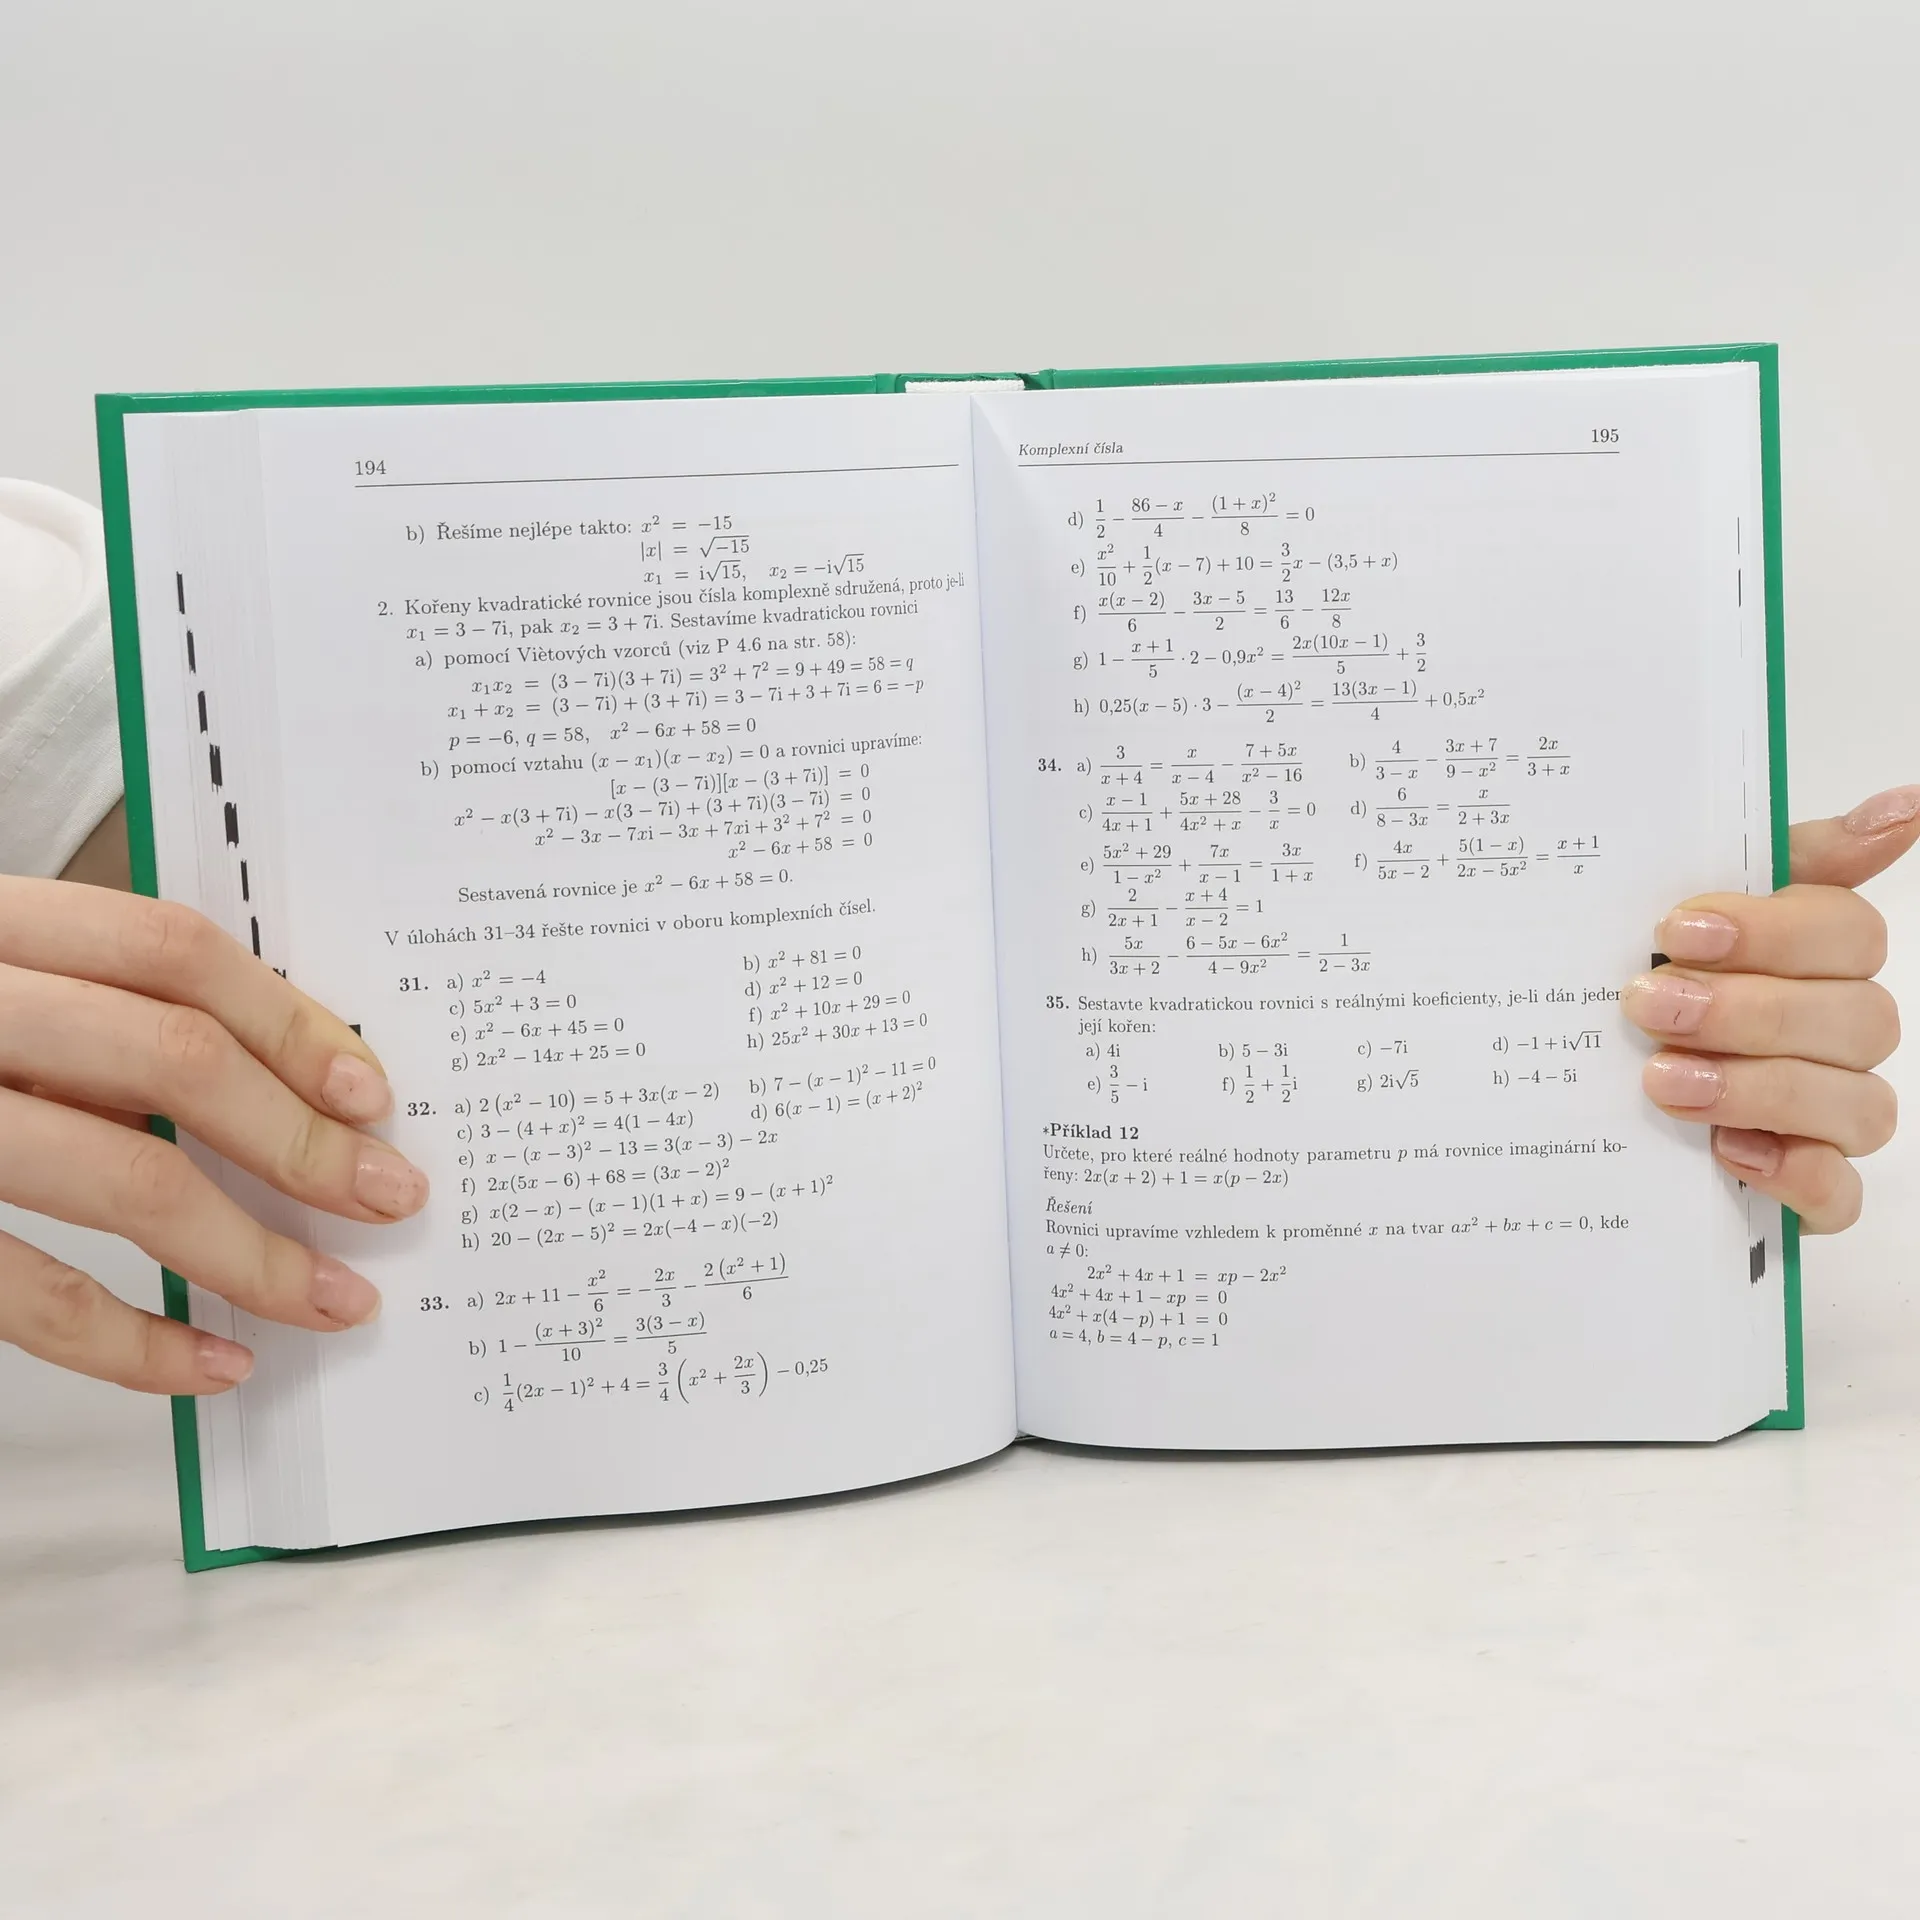 194
b) Řešíme nejlépe takto: x² = −15
|x| = √−15
x₁ = i√15, x₂ = −i√15
2. Kořeny kvadratické rovnice jsou čísla komplexně sdružená, proto je-li
x₁ = 3 − 7i, pak x₂ = 3 + 7i. Sestavíme kvadratickou rovnici
a) pomocí Viètových vzorců (viz P 4.6 na str. 58):
x₁x₂ = (3 − 7i)(3 + 7i) = 3² + 7² = 9 + 49 = 58 = q
x₁ + x₂ = (3 − 7i) + (3 + 7i) = 3 − 7i + 3 + 7i = 6 = −p
p = −6, q = 58, x² − 6x + 58 = 0
b) pomocí vztahu (x − x₁)(x − x₂) = 0 a rovnici upravíme:
[x − (3 − 7i)][x − (3 + 7i)] = 0
x² − x(3 + 7i) − x(3 − 7i) + (3 + 7i)(3 − 7i) = 0
x² − 3x − 7xi − 3x + 7xi + 3² + 7² = 0
x² − 6x + 58 = 0
Sestavená rovnice je x² − 6x + 58 = 0.
V úlohách 31–34 řešte rovnici v oboru komplexních čísel.
31. a) x² = −4 b) x² + 81 = 0
c) 5x² + 3 = 0 d) x² + 12 = 0
e) x² − 6x + 45 = 0 f) x² + 10x + 29 = 0
g) 2x² − 14x + 25 = 0 h) 25x² + 30x + 13 = 0
32. a) 2 (x² − 10) = 5 + 3x(x − 2) b) 7 − (x − 1)² − 11 = 0
c) 3 − (4 + x)² = 4(1 − 4x) d) 6(x − 1) = (x + 2)²
e) x − (x − 3)² − 13 = 3(x − 3) − 2x
f) 2x(5x − 6) + 68 = (3x − 2)²
g) x(2 − x) − (x − 1)(1 + x) = 9 − (x + 1)²
h) 20 − (2x − 5)² = 2x(−4 − x)(−2)
33. a) 2x + 11 − x²/6 = −2x/3 − 2 (x² + 1)/6
b) 1 − (x + 3)²/10 = 3(3 − x)/5
c) 1/4(2x − 1)² + 4 = 3/4 (x² + 2x/3) − 0,25
Komplexní čísla 195
d) 1/2 − 86 − x/4 − (1 + x)²/8 = 0
e) x²/10 + 1/2(x − 7) + 10 = 3/2x − (3,5 + x)
f) x(x − 2)/6 − 3x − 5/2 = 13/6 − 12x/8
g) 1 − x + 1/5 · 2 − 0,9x² = 2x(10x − 1)/5 + 3/2
h) 0,25(x − 5) · 3 − (x − 4)²/2 = 13(3x − 1)/4 + 0,5x²
34. a) 3/x + 4 = x/x − 4 − 7 + 5x/x² − 16 b) 4/3 − x − 3x + 7/9 − x² = 2x/3 + x
c) x − 1/4x + 1 + 5x + 28/4x² + x − 3/x = 0 d) 6/8 − 3x = x/2 + 3x
e) 5x² + 29/1 − x² + 7x/x − 1 = 3x/1 + x f) 4x/5x − 2 + 5(1 − x)/2x − 5x² = x + 1/x
g) 2/2x + 1 − x + 4/x − 2 = 1
h) 5x/3x + 2 − 6 − 5x − 6x²/4 − 9x² = 1/2 − 3x
35. Sestavte kvadratickou rovnici s reálnými koeficienty, je-li dán jeden
její kořen:
a) 4i b) 5 − 3i c) −7i d) −1 + i√11
e) 3/5 − i f) 1/2 + 1/2i g) 2i√5 h) −4 − 5i
*Příklad 12
Určete, pro které reálné hodnoty parametru p má rovnice imaginární ko-
řeny: 2x(x + 2) + 1 = x(p − 2x)
Řešení
Rovnici upravíme vzhledem k proměnné x na tvar ax² + bx + c = 0, kde
a ≠ 0:
2x² + 4x + 1 = xp − 2x²
4x² + 4x + 1 − xp = 0
4x² + x(4 − p) + 1 = 0
a = 4, b = 4 − p, c = 1